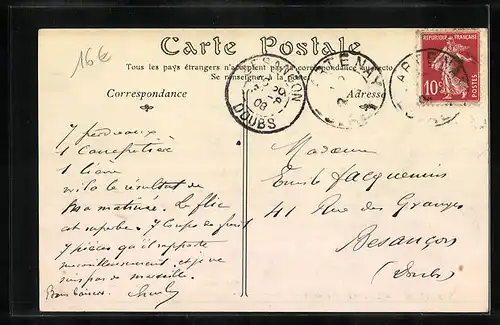 16€
Carte Postale
Tous les pays étrangers n'acceptent pas la correspondance au recto
Se renseigner à la poste
Correspondance
Adresse
BESANÇON
DOUBS
ARTENAY
ARTENAY
REPUBLIQUE FRANÇAISE
10c
POSTES
7 perdreaux
1 canepetière
1 lièvre
voilà le résultat de
ma matinée. Le flic
est superbe. 7 Coups de fusil
7 pièces qu'il rapporte
merveilleusement et je ne
suis pas de
Bons baisers Charles
Madame
Emile Jacquemin
41 Rue des Granges
Besançon
(Doubs)